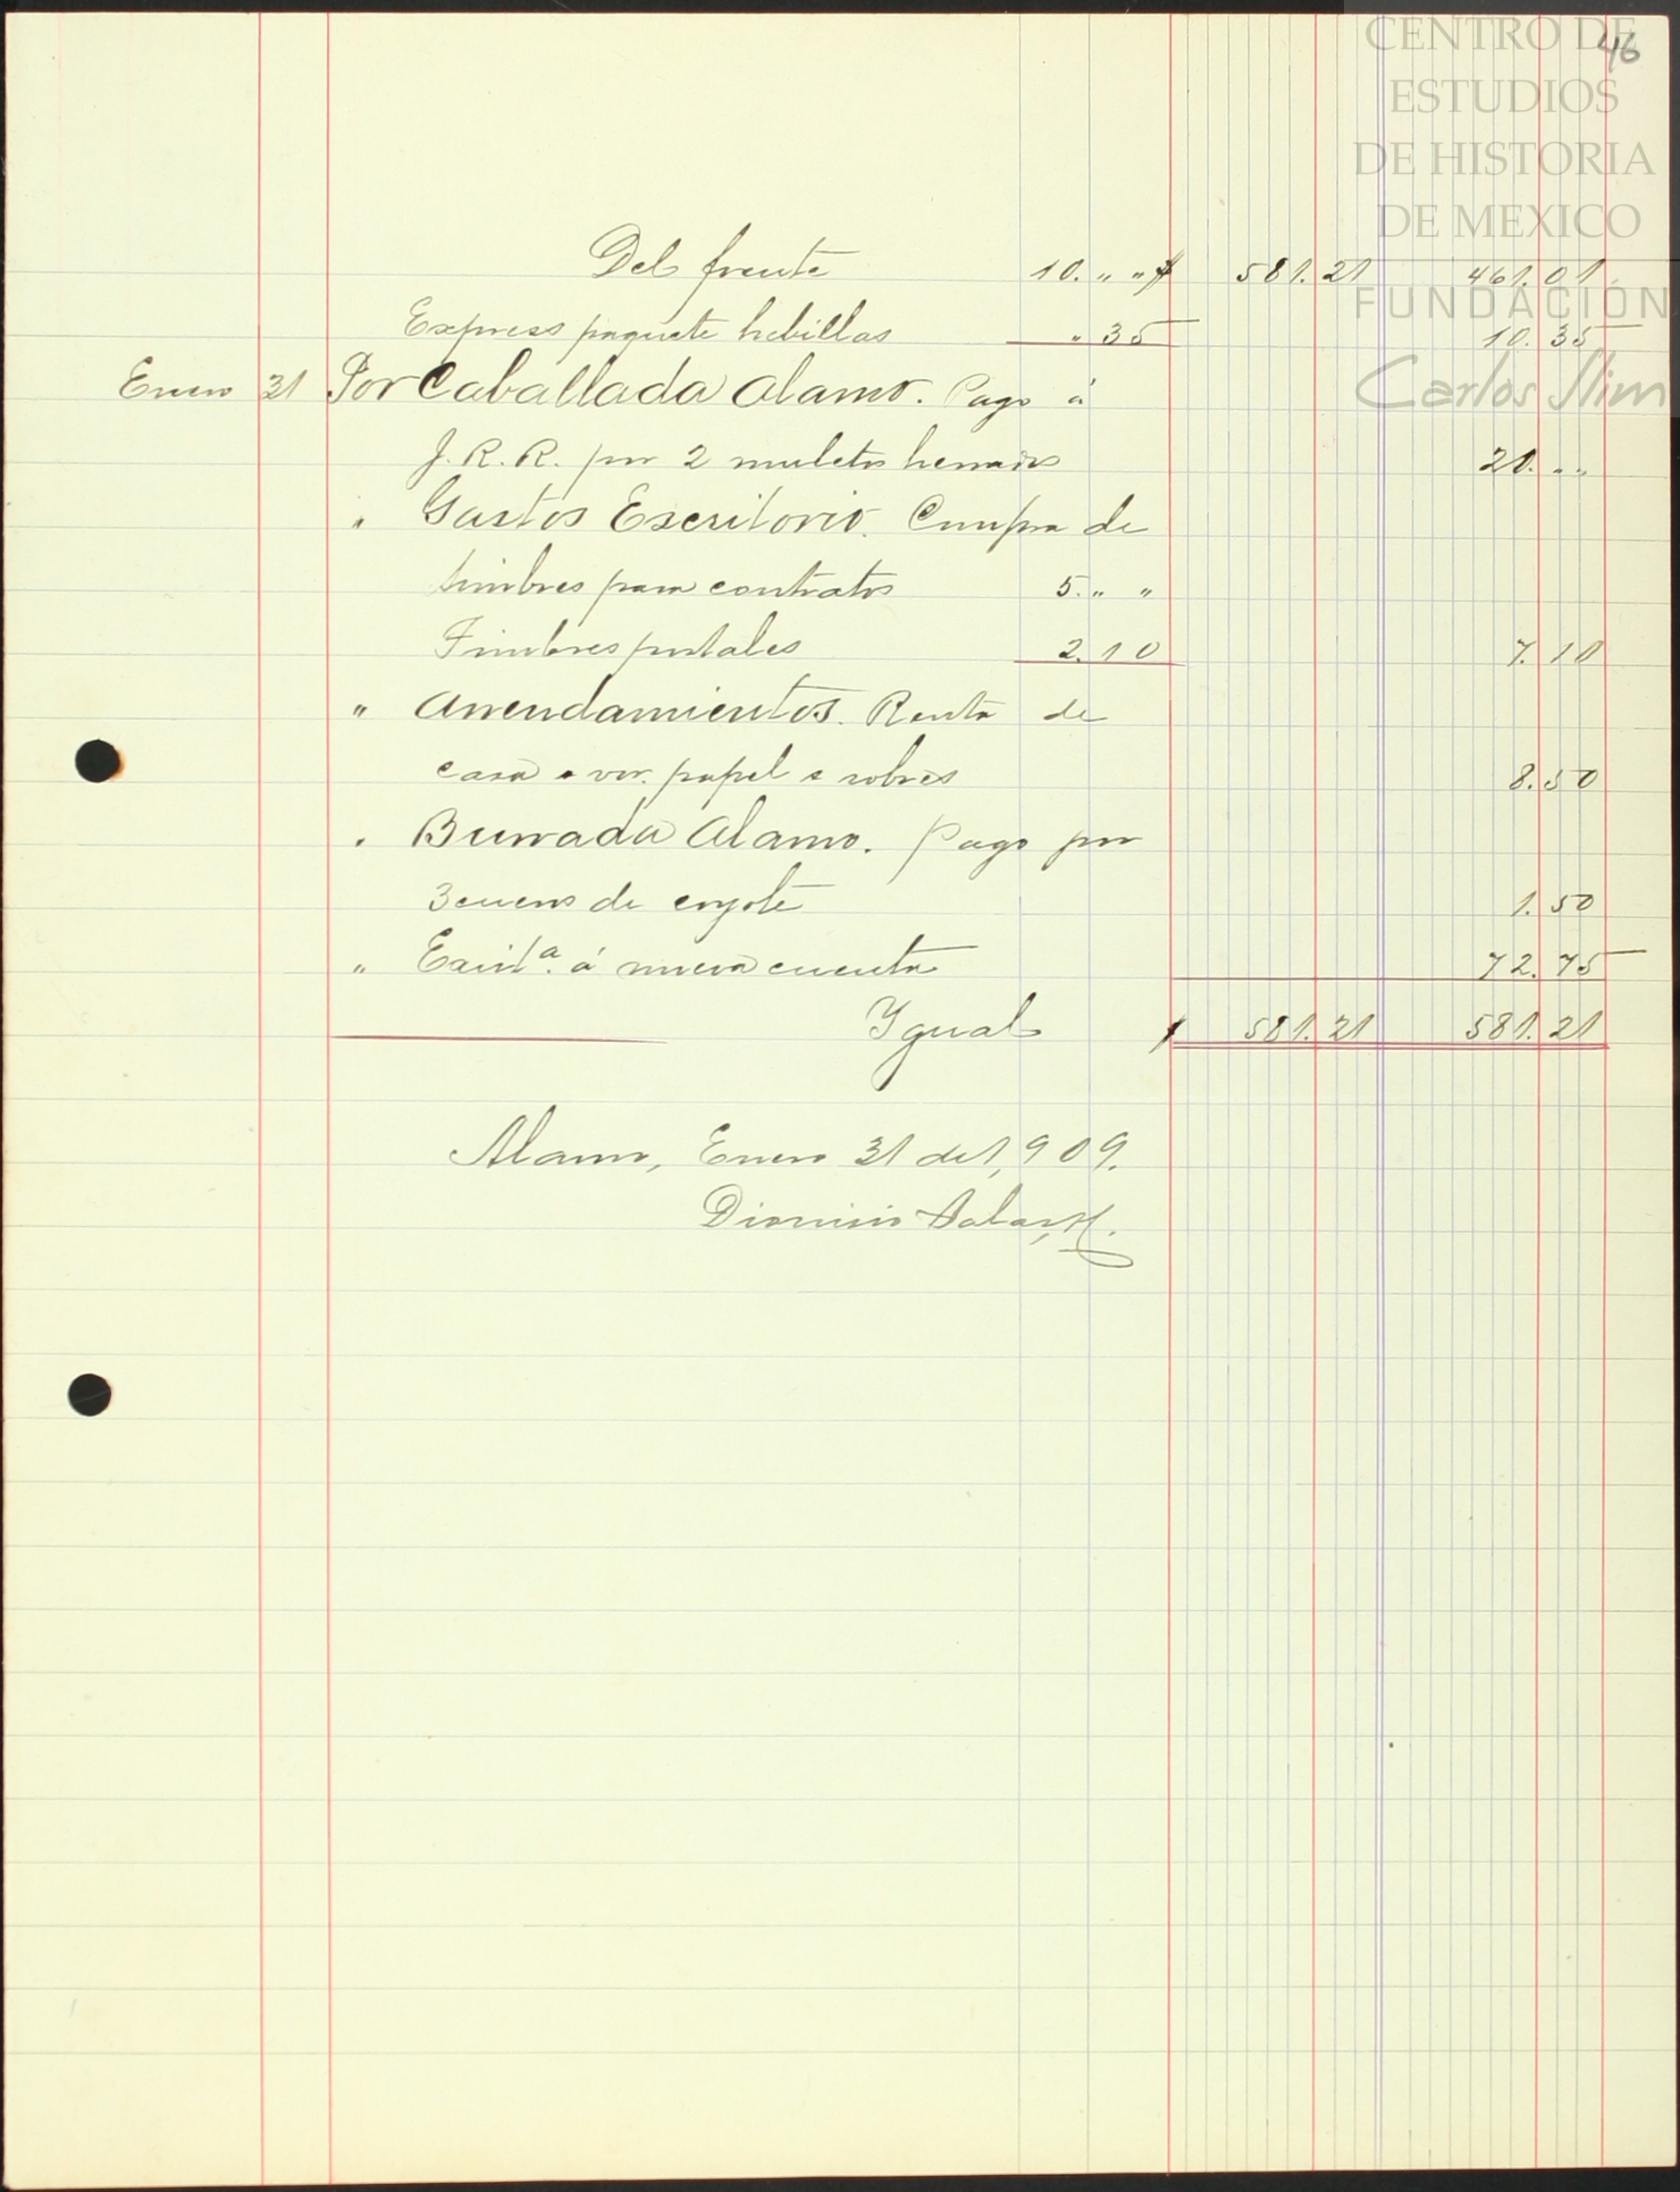 CENTRO DE
ESTUDIOS
DE HISTORIA
DE MEXICO
FUNDACIÓN
Carlos Slim
46
Del frente 10. „ „ $ 581.21 461.01
Express paquete hebillas „ 35 10.35
Enero 31 Por Caballada Alamo. Pago á
J. R. R. por 2 muletos 20. „ „
„ Gastos Escritorio. Compra de
timbres para contratos 5. „ „
Timbres postales 2.10 7.10
„ Arrendamientos. Renta de
casa papel e sobres 8.50
„ Burrada Alamo. Pago por
3 cueros de coyote 1.50
„ Exist.ª á nueva cuenta 72.75
Igual $ 581.21 581.21
Alamo, Enero 31 de 1,909.
Dionisio Salas